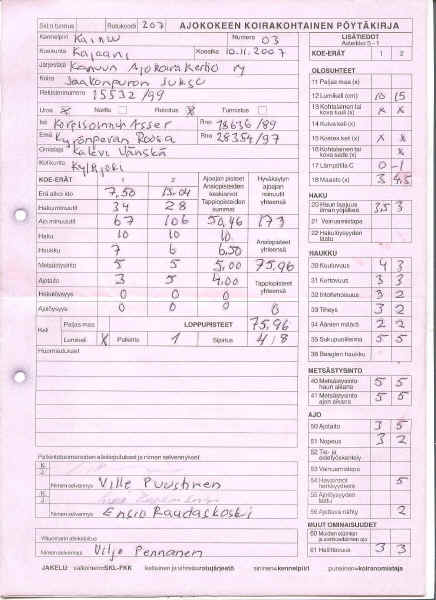 SKL:n tunnus Rotukoodi 2071 AJOKOKEEN KOIRAKOHTAINEN PÖYTÄKIRJA
Kennelpiiri Kainuu Numero 03
Koekunta Kajaani Koeaika 10.11.2007
Järjestäjä Kainuun Ajokoirakerho ry
Koira Jaakonpuron Juksu
Rekisterinumero 15532/99
Uros x Narttu Rokotus x Tunnistus
Isä Korpisoinnun Asser Rno 18636/89
Emä Kypönperän Roosa Rno 28354/97
Omistaja Kalevi Vänskä
Kotikunta Kylkjoki
KOE-ERÄT 1 2 Ajoajan pisteet Hyväksytyn ajoajan minuutit yhteensä
Ansiopisteiden keskiarvot
Tappiopisteiden summa
Erä alkoi klo 7,50 13.04
Hakuminuutit 34 28
Ajo minuutit 67 106 50,46 173
Haku 10 10 10
Haukku 7 6 6,50 Ansiopisteet yhteensä
Metsästysinto 5 5 5,00 75,96
Ajotaito 3 5 4,00 Tappiopisteet yhteensä
Hakulöysyys 0 0 0
Ajolöysyys 0 0 0 0
Keli Paljas maa LOPPUPISTEET 75,96
Lumikeli X Palkinto 1 Sijoitus 4/8
Huomautukset
Palkintotuomareiden allekirjoitukset ja nimen selvennykset
Nimen selvennys Ville Puustinen
Nimen selvennys Ensio Raudaskoski
Ylituomarin allekirjoitus
Nimen selvennys Viljo Pennanen
LISÄTIEDOT
Asteikko 5–1
KOE-ERÄT 1 2
OLOSUHTEET
11 Paljas maa (x)
12 Lumikeli (cm) 10 15
13 Kohtalainen tai kova tuuli (x) x x
14 Kuiva keli (x)
15 Kostea keli (x) x x
16 Kohtalainen tai kova sade (x) x
17 Lämpötila C 0 -1
18 Maasto (x) 3 4,5
HAKU
20 Haun laajuus ilman yöjälkeä 3,5 3
21 Vainunnistapa
22 Hakulöysyyden laatu
HAUKKU
30 Kuuluvuus 4 3
31 Kertovuus 3 3
32 Intohimoisuus 3 2
33 Tiheys 3 2
34 Äänien määrä 2 2
35 Sukupuolileima 5 5
36 Beaglen haukku
METSÄSTYSINTO
40 Metsästysinto haun aikana 5 5
41 Metsästysinto ajon aikana 5 5
AJO
50 Ajotaito 3 5
51 Nopeus 3 2
52 Tie- ja estetyöskentely
53 Vainuamistapa
5
55 Ajolöysyyden laatu
56 Ajettava nähty 2
MUUT OMINAISUUDET
61 Hallittavuus 3 3
JAKELU valkoinen=SKL-FKK keltainen ja vihreä=rotujärjestö sininen=kennelpiiri punainen=koiranomistaja